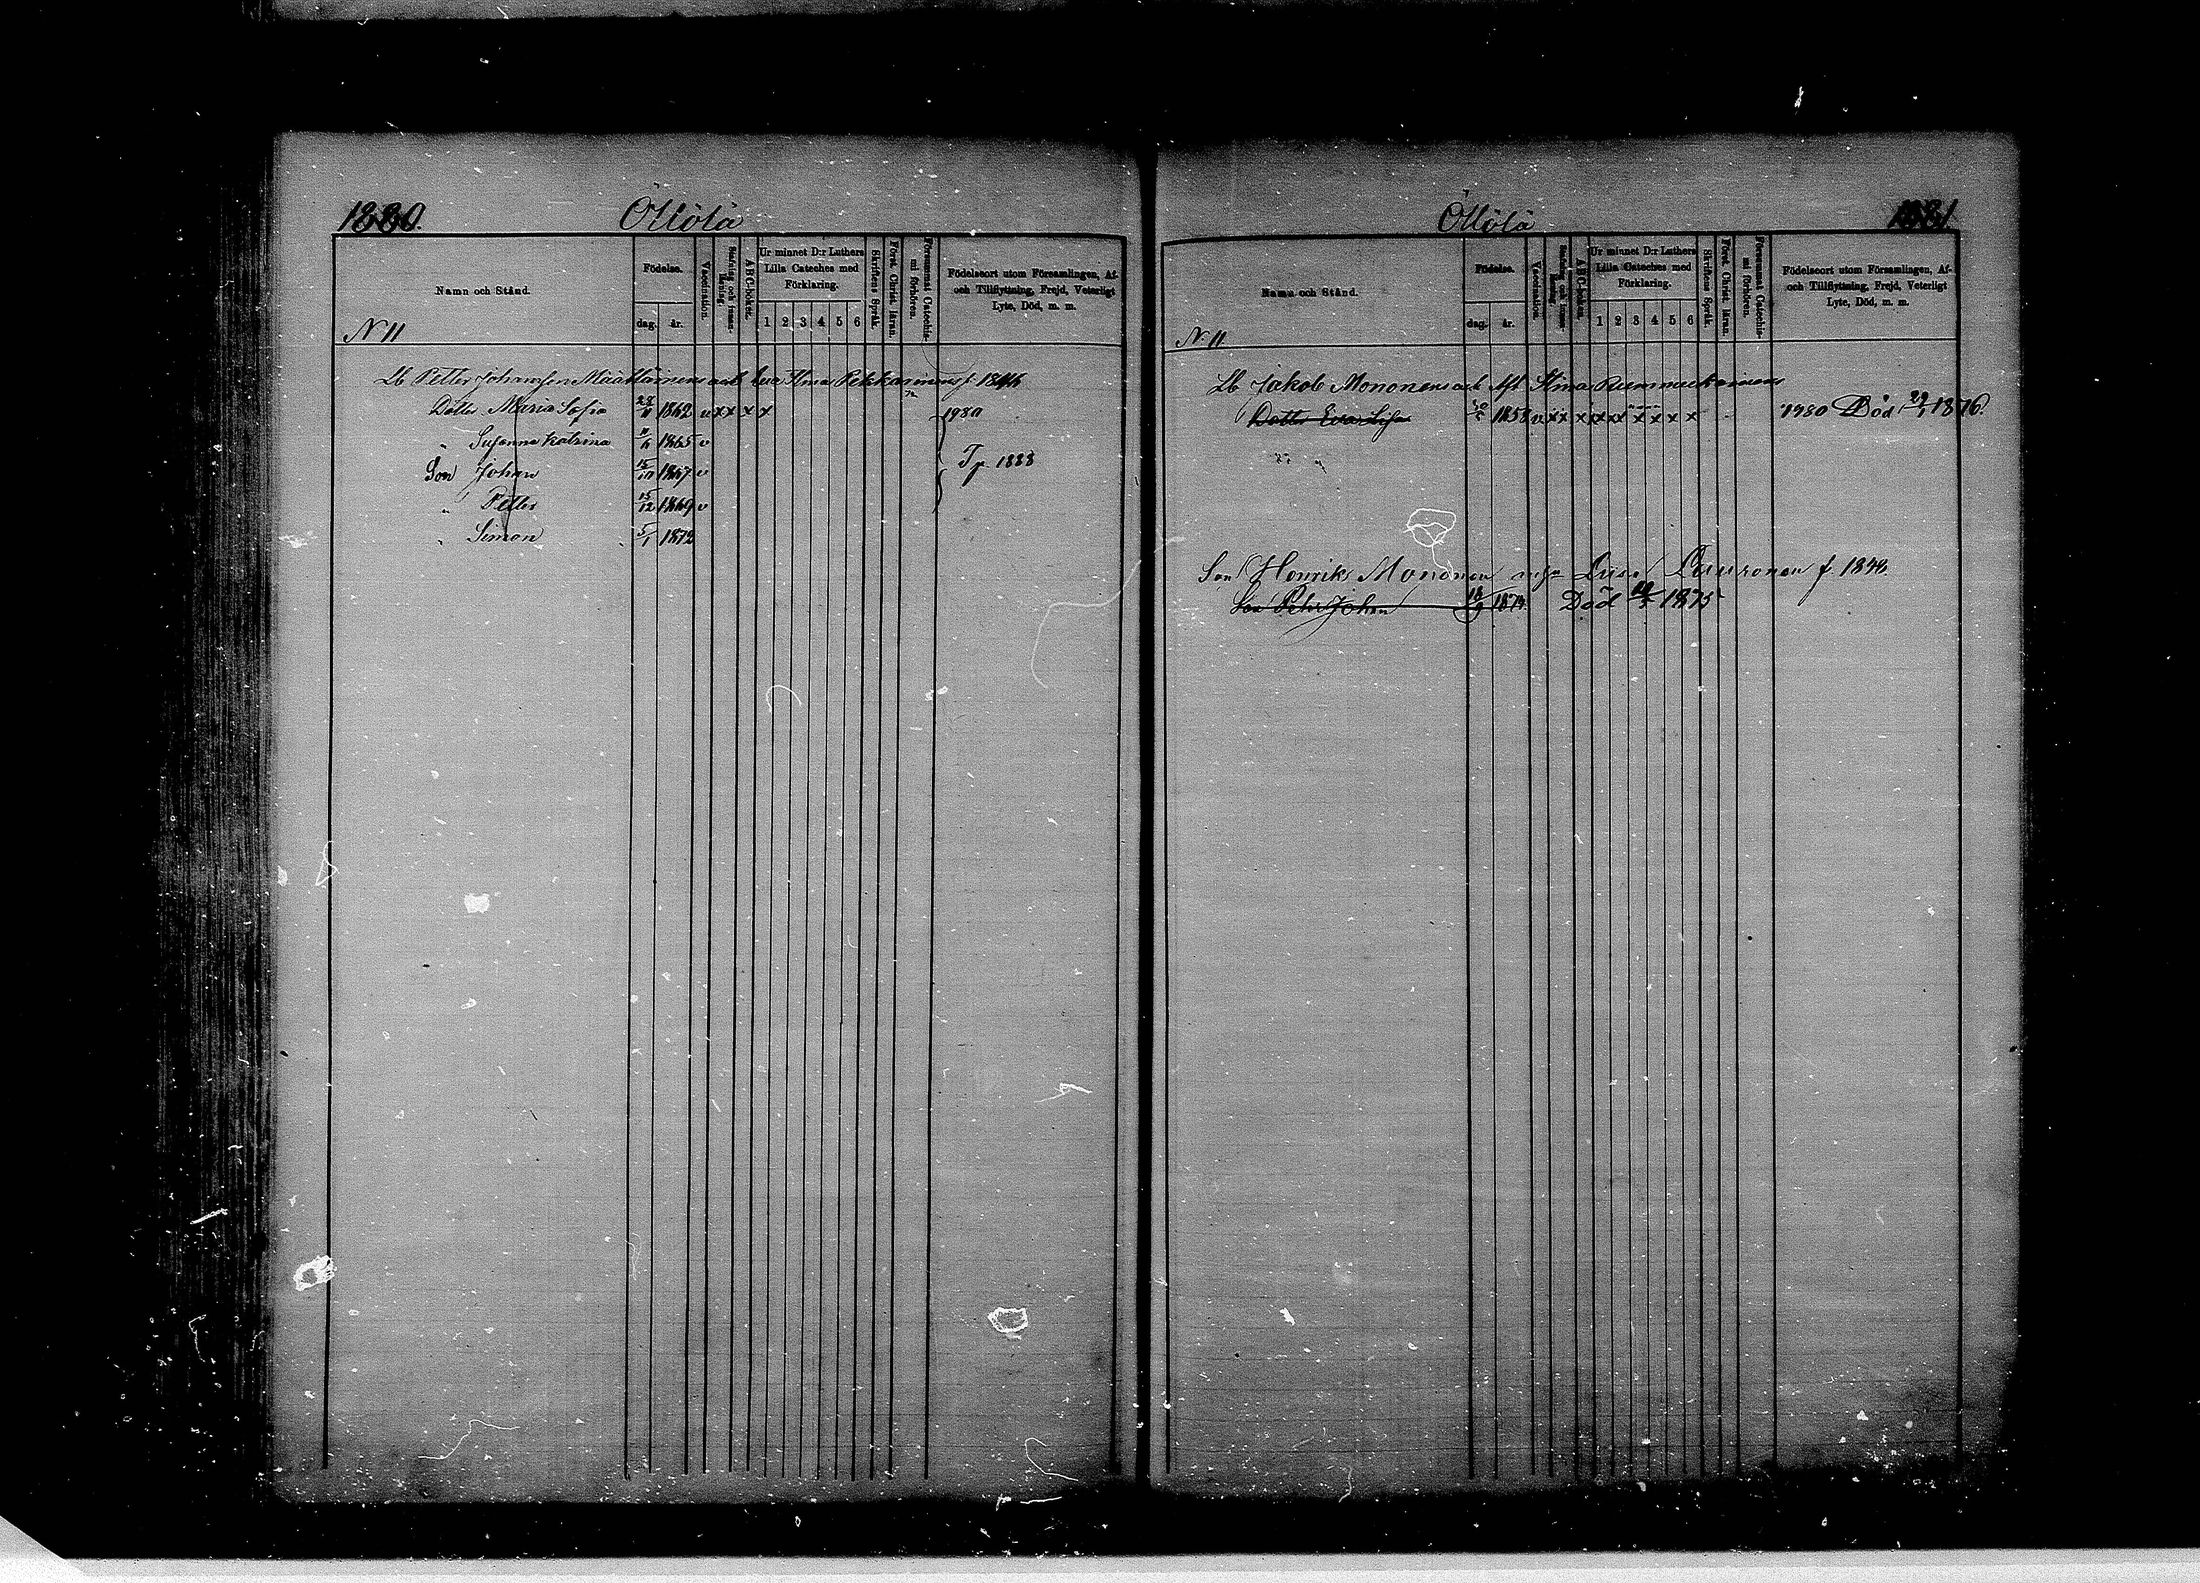 1880. Ollölä
Namn och Stånd.
Födelse.
dag. år.
Vaccination.
Stafning och innanläsning.
A B C-boken.
Ur minnet D:r Luthers Lilla Cateches med Förklaring.
1 2 3 4 5 6
Skriftens Språk.
Förest. Christ. läran.
Försummat Catechismi förhören.
Födelseort utom Församlingen, Af- och Tillflyttning, Frejd, Veterligt Lyte, Död, m. m.
N 11
Lb Petter Johansson Määttänens och Eva Stina Pekkarinens f. 1844
Dotter Maria Sofia 28/11 1862 v x x x x 1980
" Susanna Katrina 11/6 1865 v
Son Johan 15/10 1867 v Tp. 1888
" Petter 15/12 1869 v
" Simon 5/1 1872
Ollölä 1881.
Namn och Stånd.
Födelse.
dag. år.
Vaccination.
Stafning och innanläsning.
A B C-boken.
Ur minnet D:r Luthers Lilla Cateches med Förklaring.
1 2 3 4 5 6
Skriftens Språk.
Förest. Christ. läran.
Försummat Catechismi förhören.
Födelseort utom Församlingen, Af- och Tillflyttning, Frejd, Veterligt Lyte, Död, m. m.
N. 11.
Lb Jakob Mononens och Stina
Dotter Eva Lisa 1858 v x x x x x x x x x x 1980 Död 29/1 1876.
Son Henrik Mononen Lisa Lauronen f. 1848.
Son Pehr Johan 18/9 1874 Död 1875